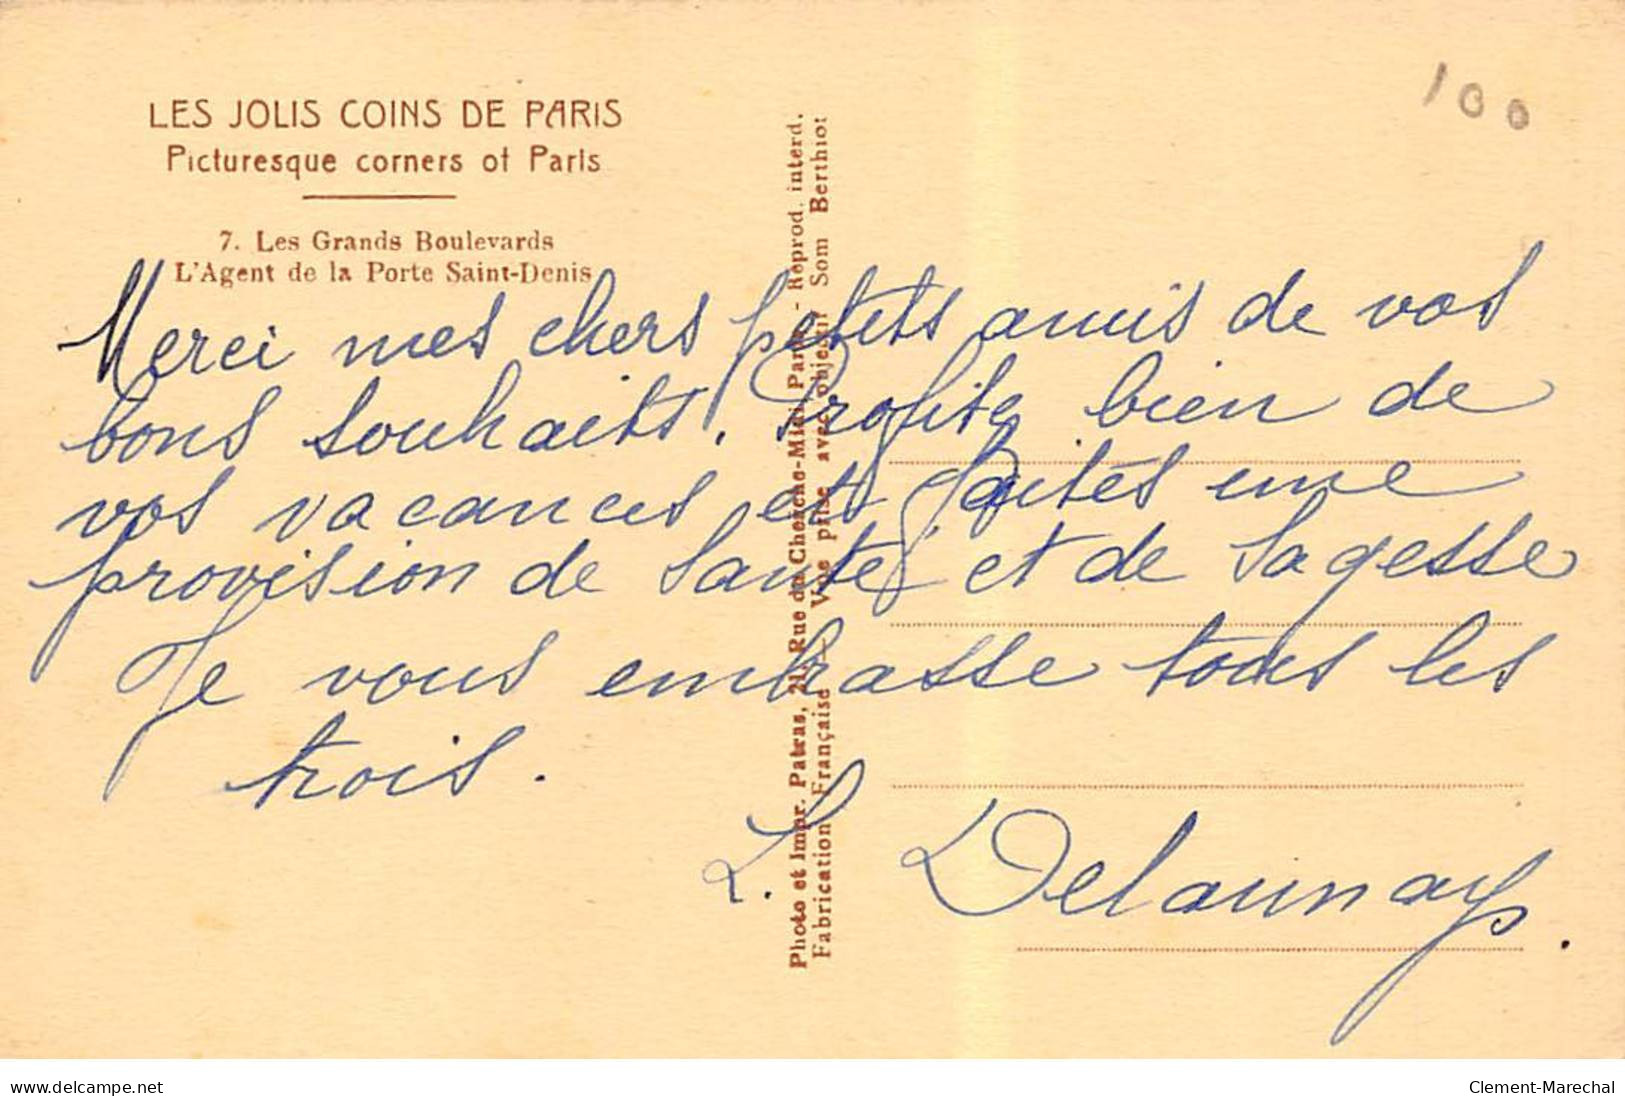 LES JOLIS COINS DE PARIS
Picturesque corners of Paris
7. Les Grands Boulevards
L'Agent de la Porte Saint-Denis
100
Merci mes chers petits amis de vos
bons souhaits. Profitez bien de
vos vacances et faites une
provision de santé et de sagesse
Je vous embrasse tous les
trois.
L. Delaunay.
Photo et Impr. Patras, 21, Rue du Cherche-Midi, Paris - Reprod. interd.
Fabrication Française - Vue prise avec objectif Som Berthiot
www.delcampe.net
Clement-Marechal